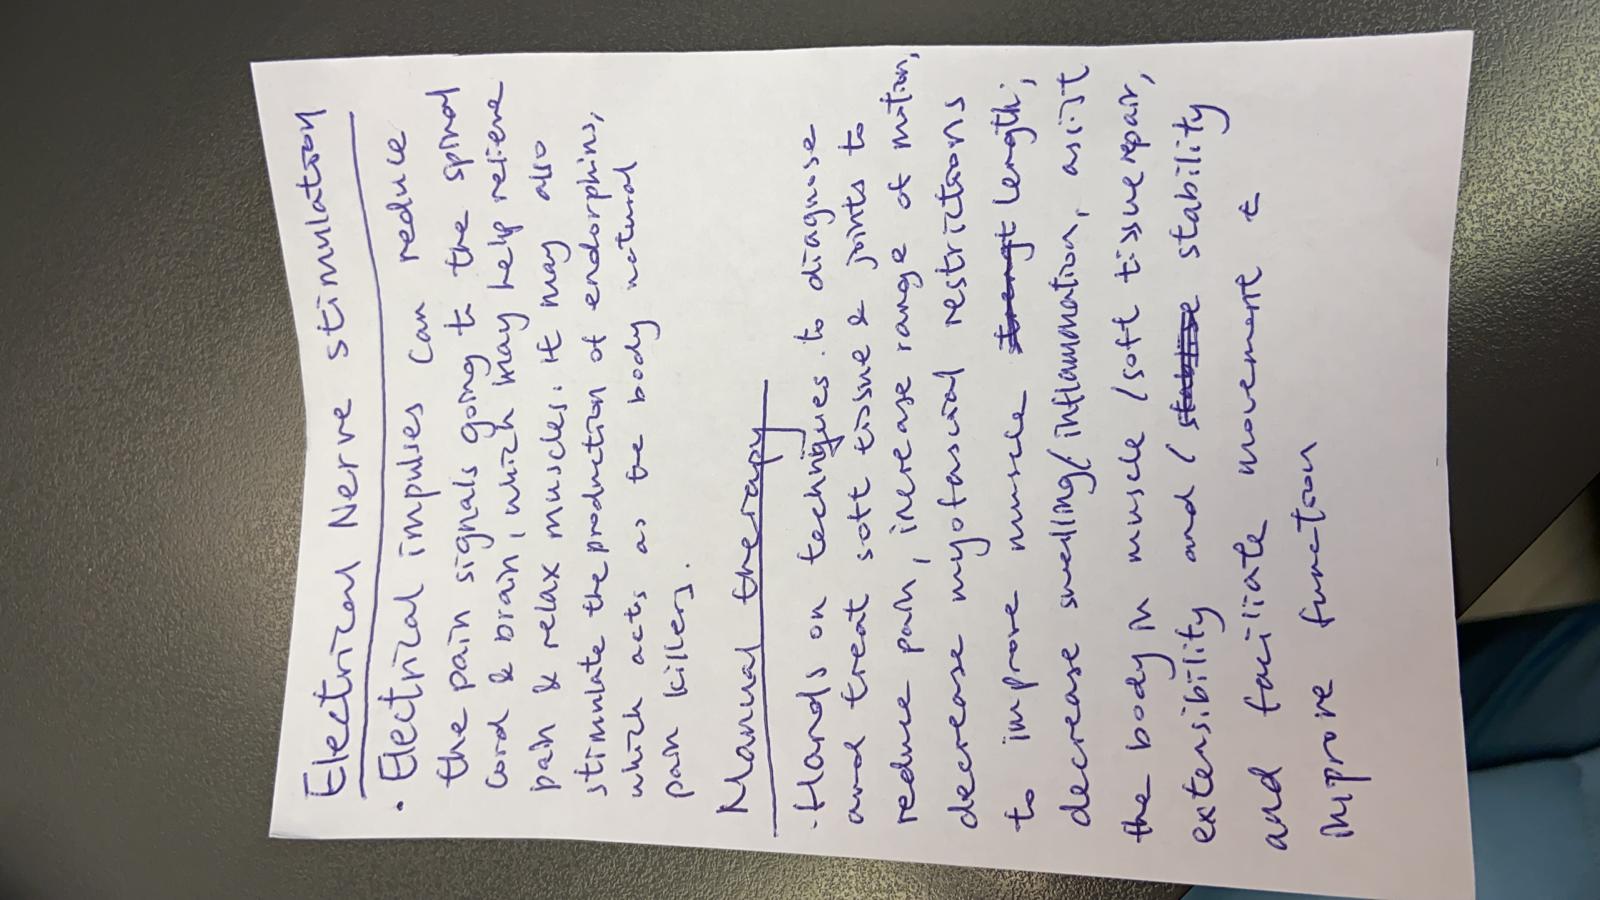 Electrical Nerve stimulation
• Electrical impulses can reduce
the pain signals going to the spinal
cord & brain, which may help relieve
pain & relax muscles. it may also
stimulate the production of endorphins,
which acts as the body natural
pain killers.
Manual therapy
• Hands on techniques to diagnose
and treat soft tissue & joints to
reduce pain, increase range of motion,
decrease myofascial restrictions
to improve muscle strengt length;
decrease swelling/inflammation, assist
the body in muscle /soft tissue repair,
extensibility and / stablise stability
and faciliate movement &
improve function